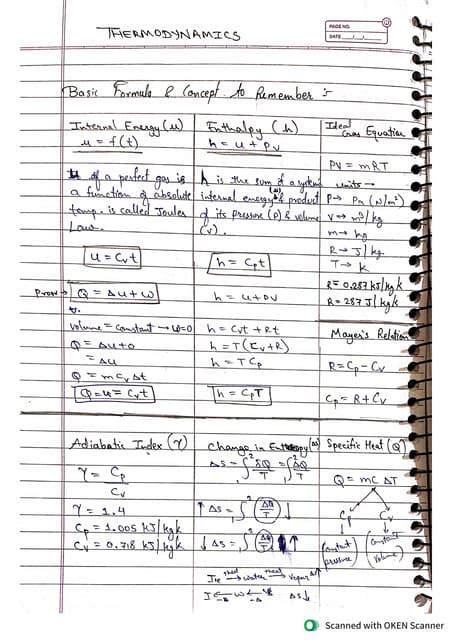 THERMODYNAMICS
PAGE NO.
DATE
Basic Formula & Concept to Remember :-
Internal Energy (u)
u = f(t)
u of a perfect gas is
a function of absolute
temp. is called Joules
Law.
u = Cvt
Prove → Q = Δu + w
Volume = Constant → w=0
Q = Δu+0
= Δu
Q = m Cv Δt
Q = u = Cvt
Enthalpy (h)
h = u + Pv
h is the sum of a system
internal energy (u) & product
of its pressure (P) & volume
(v).
h = Cpt
h = u + pv
h = Cvt + Rt
h = T(Cv+R)
h = T Cp
h = CpT
Ideal
Gas Equation
PV = mRT
units →
P → Pa (N/m²)
V → m³/kg
m → kg
R → J/kg
T → K
R = 0.287 kJ/kgk
R = 287 J/kgk
Mayer's Relation
R = Cp - Cv
Cp = R + Cv
Adiabatic Index (γ)
γ = Cp
Cv
γ = 1.4
Cp = 1.005 kJ/kgk
Cv = 0.718 kJ/kgk
Change in Entropy (Δs)
Δs = ∫₁² δQ/T = ∫₁² ΔQ/T
↑ Δs = ∫₁² (ΔQ/T) ↓
↓ Δs = ∫₁² (ΔQ/T) ↑
Ice heat→ water heat→ vapor Δs↑
I ← W ← V Δs↓
Specific Heat (Q)
Q = mC ΔT
Cp Cv
(Constant pressure) (Constant volume)
Scanned with OKEN Scanner